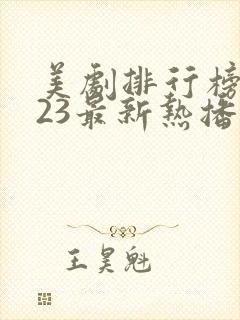 美剧排行榜
23最新热播
王昊魁